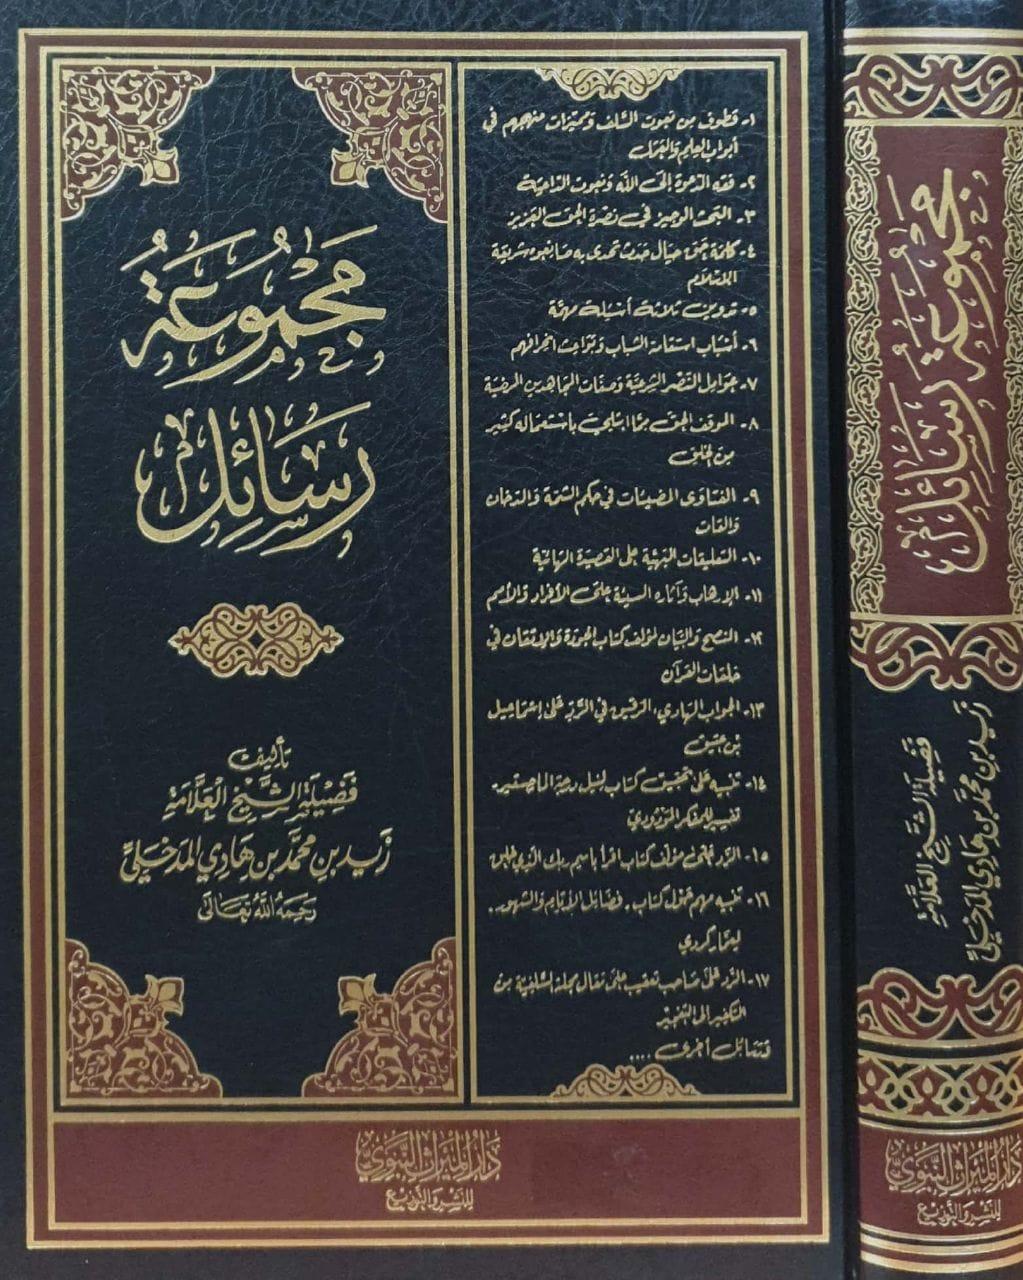 مَجْمُوعَةُ
رَسَائِل
تأليف
فضيلة الشيخ العلامة
زيد بن محمد بن هادي المدخلي
رحمه الله تعالى
١- قطوف من نعوت السلف ومميزات منهجهم في
أبواب العلم والعمل
٢- فقه الدعوة إلى الله ونعوت الداعية
٣- البحث الوجيز في نصرة الحق العزيز
٤- كلمة حق حيال حدث تحدى به صانعوه شريعة
الإسلام
٥- تدوين ثلاثة أسئلة مهمة
٦- أسباب استقامة الشباب وبواعث انحرافهم
٧- عوامل النصر الشرعية وصفات المجاهدين المرضية
٨- الموقف الحق مما ابتلي باستعماله كثير
من الخلق
٩- الفتاوى المضيئات في حكم الشمة والدخان
والقات
١٠- التعليقات البهية على القصيدة الهائية
١١- الإرهاب وآثاره السيئة على الأفراد والأمم
١٢- النصح والبيان لمؤلف كتاب الجودة والإتقان في
حلقات القرآن
١٣- الجواب الهادي، الرقيق في الرد على إسماعيل
بن عتيق
١٤- تنبيه على تحقيق كتاب لنيل درجة الماجستير.
تفسير للمفكر المودودي
١٥- الرد على مؤلف كتاب اقرأ باسم ربك الذي خلق
١٦- تنبيه مهم حول كتاب. فضائل الأيام والشهور.
لعمار كردي
١٧- الرد على صاحب تعقيب على مقال بمجلة السلفية من
التكفير إلى التفجير
وسائل أخرى ....
دار الميراث النبوي
للنشر والتوزيع
مجموعة رسائل
فضيلة الشيخ العلامة
زيد بن محمد بن هادي المدخلي
دار الميراث النبوي
للنشر والتوزيع